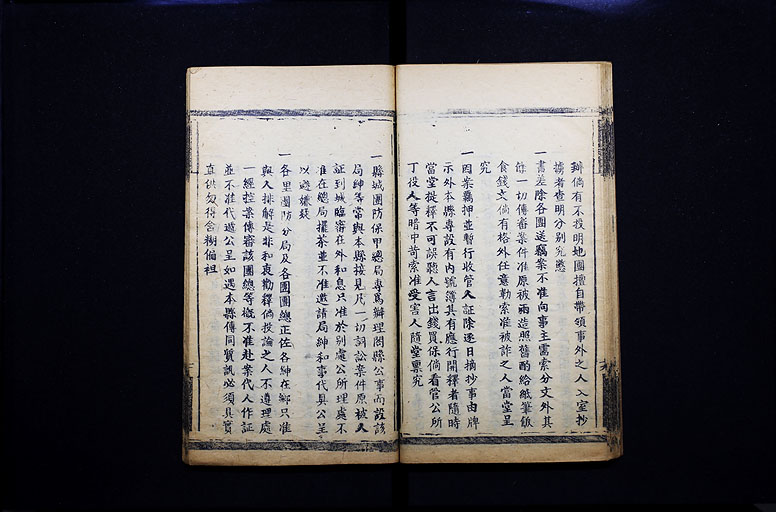 辦倘有不投明地團擅自帶領事外之人入室抄
擄者查明分别究懲
一書差除各團送竊案不准向事主需索分文外其
餘一切傳審案件准原被兩造照舊酌給紙筆飯
食錢文倘有格外任意勒索准被詐之人當堂呈
究
一因案羈押並暫行收管人証除逐日摘抄事由牌
示外本縣專設有內號簿其有應行開釋者隨時
當堂提釋不可誤聽人言出錢買保倘看管公所
丁役人等暗中苛索准受害人隨堂禀究
一縣城團防保甲總局專爲辦理閤縣公事而設該
局紳等當與本縣接見凡一切詞訟案件原被人
証到城臨審在外和息只准於別處公所理處不
准在總局擺茶並不准邀請局紳和事代具公呈
以避嫌疑
一各里團防分局及各團團總正佐各紳在鄉只准
與人排解是非和衷勸釋倘投論之人不遵理處
一經控案傳審該團總等概不准赴案代人作証
並不准代遞公呈如遇本縣傳同質訊必須具實
直供勿得含糊偏袒